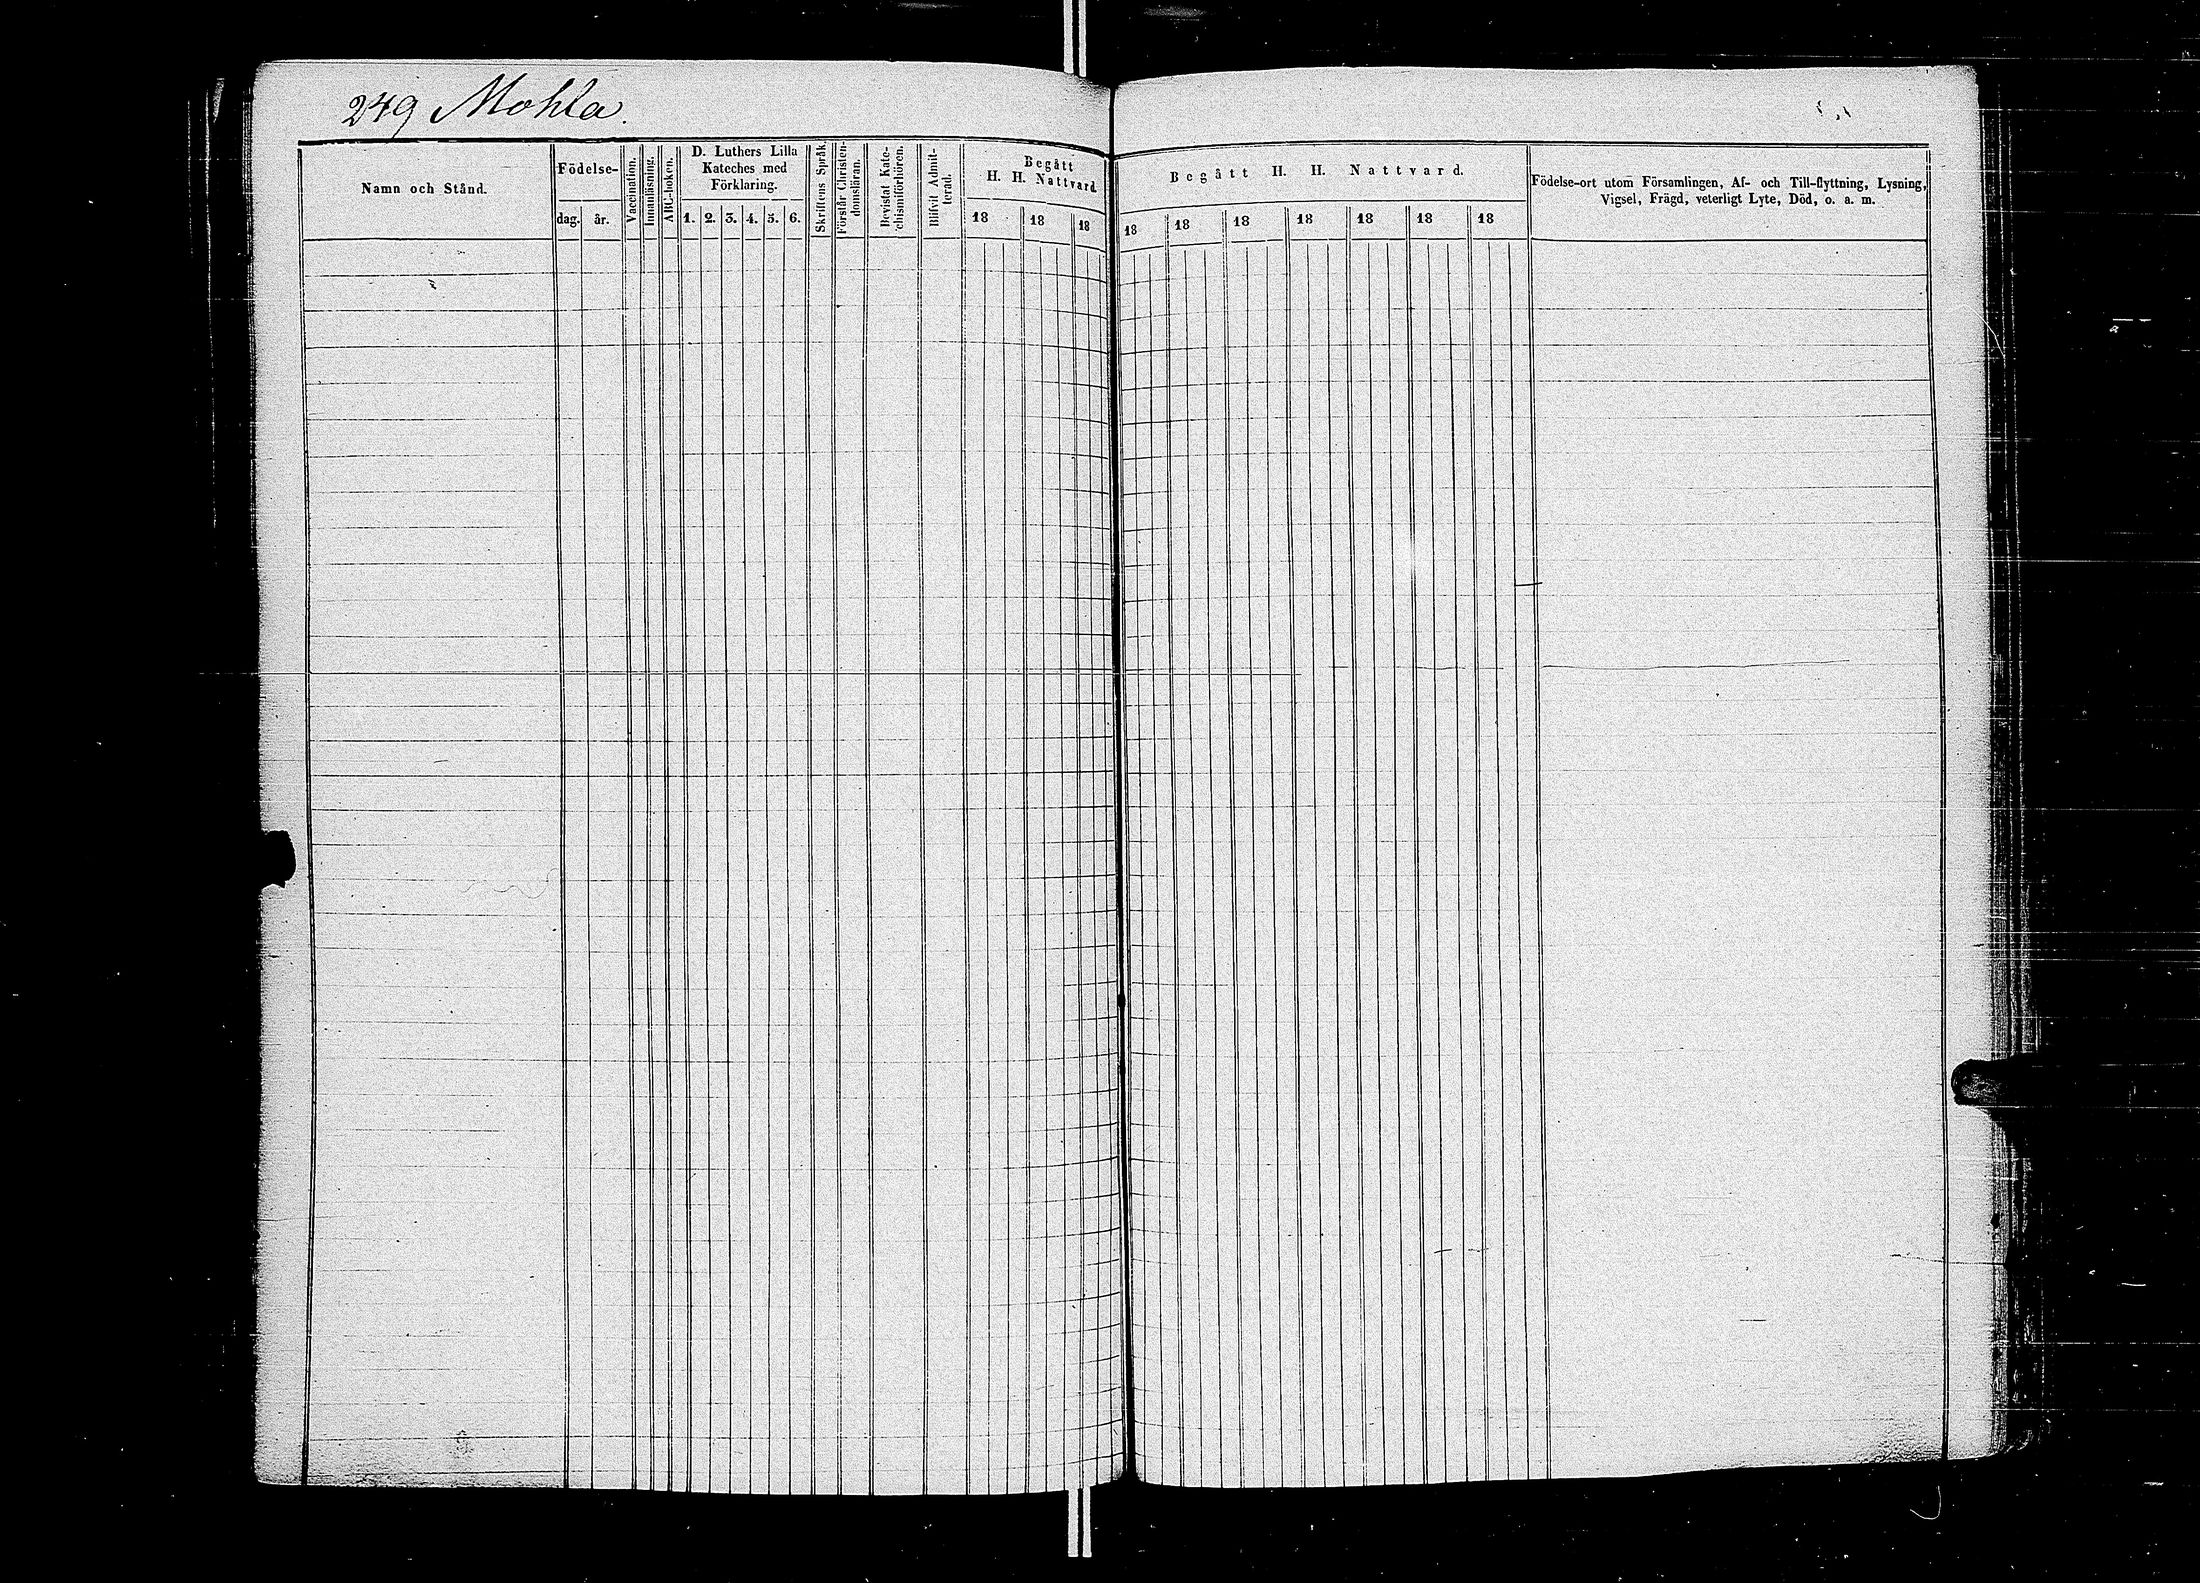 249 Mohla.
Namn och Stånd.
Födelse-
dag. år.
Vaccination.
Innanläsning.
ABC-boken.
D. Luthers Lilla
Kateches med
Förklaring.
1. 2. 3. 4. 5. 6.
Skriftens Språk.
Förstår Christen-
domsläran.
Bevistat Kate-
chismiförhören.
Blifvit Admit-
terad.
Begått
H. H. Nattvard.
18 18 18
Begått H. H. Nattvard.
18 18 18 18 18 18 18
Födelse-ort utom Församlingen, Af- och Till-flyttning, Lysning,
Vigsel, Frägd, veterligt Lyte, Död, o. a. m.